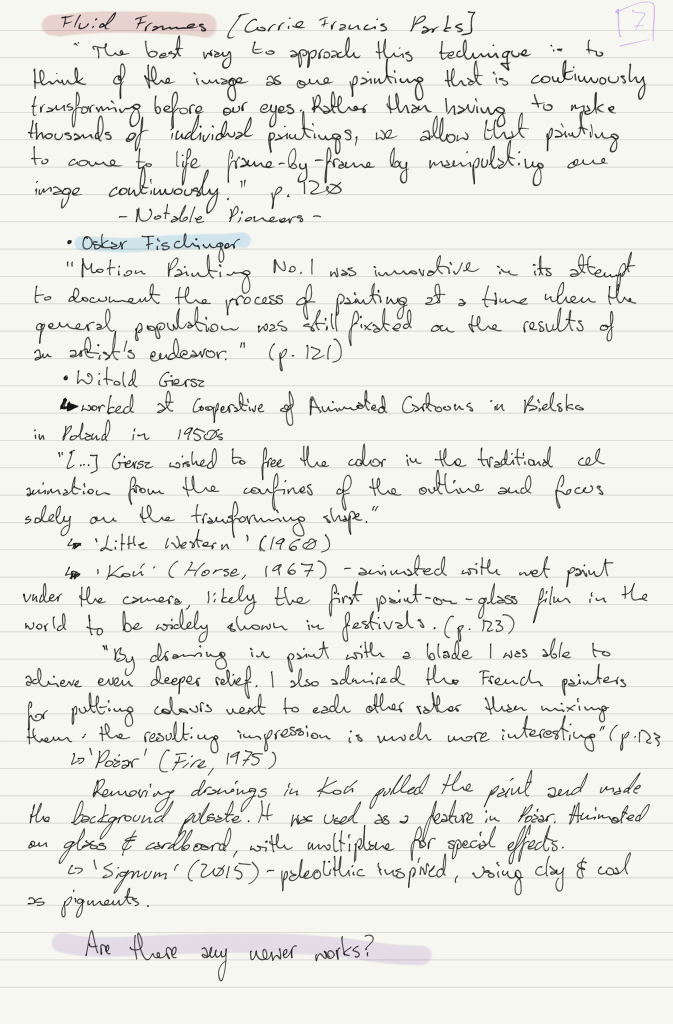 Fluid Frames [Corrie Francis Parks]
7
"The best way to approach this technique is to
think of the image as one painting that is continuously
transforming before our eyes. Rather than having to make
thousands of individual paintings, we allow that painting
to come to life frame-by-frame by manipulating one
image continuously." p. 120
- Notable Pioneers -
• Oskar Fischinger
"Motion Painting No. 1 was innovative in its attempt
to document the process of painting at a time when the
general population was still fixated on the results of
an artist's endeavor." (p. 121)
• Witold Giersz
↳ worked at Cooperative of Animated Cartoons in Bielsko
in Poland in 1950s
"[...] Giersz wished to free the color in the traditional cel
animation from the confines of the outline and focus
solely on the transforming shape."
↳ 'Little Western' (1960)
↳ 'Koń' (Horse, 1967) - animated with wet paint
under the camera, likely the first paint-on-glass film in the
world to be widely shown in festivals. (p. 123)
"By drawing in paint with a blade I was able to
achieve even deeper relief. I also admired the French painters
for putting colours next to each other rather than mixing
them: the resulting impression is much more interesting" (p. 123
↳ 'Pożar' (Fire, 1975)
Removing drawings in Koń pulled the paint and made
the background pulsate. It was used as a feature in Pożar. Animated
on glass & cardboard, with multiplane for special effects.
↳ 'Signum' (2015) - paleolithic inspired, using clay & coal
as pigments.
Are there any newer works?